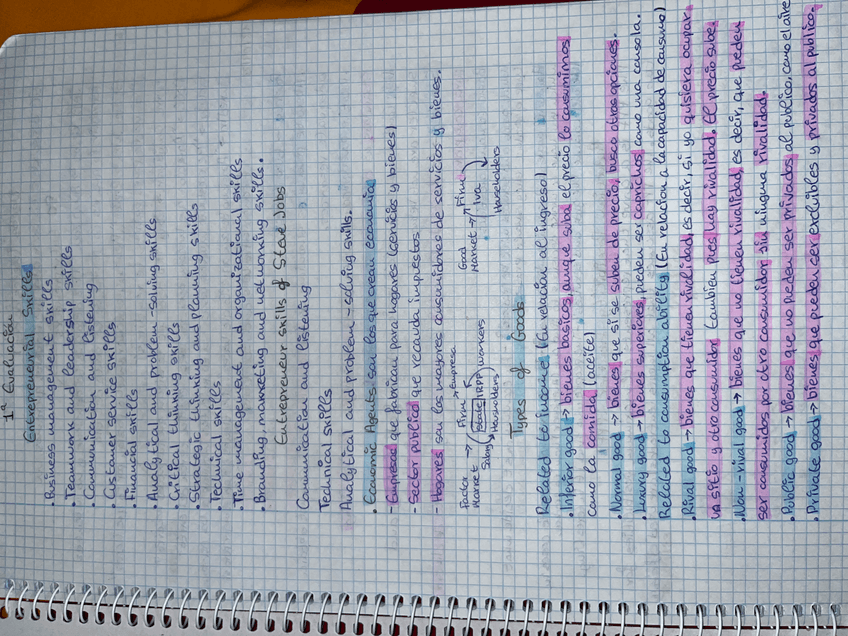 1ª Evaluación
Entrepreneurial Skills
• Business management skills
• Teamwork and leadership skills
• Communication and listening
• Customer service skills
• Financial skills
• Analytical and problem-solving skills
• Critical thinking skills
• Strategic thinking and planning skills
• Technical skills
• Time management and organizational skills
• Branding, marketing and networking skills.
Entrepreneur skills of Steve Jobs
Communication and listening
Technical skills
Analytical and problem-solving skills.
• Economic Agents son los que crean economía
- Empresas que fabrican para hogares (servicios y bienes)
- Sector público que recauda impuestos
- Hogares son los mayores consumidores de servicios y bienes.
Factor Market → Firm → empresa
State IRPF workers
Householders
Good Market → Firm
Iva
Householders
Types of Goods
Related to income (En relación al ingreso)
• Inferior good → bienes básicos, aunque suba el precio lo consumimos
como la comida (aceite)
• Normal good → bienes que si se suben de precio, busco otras opciones.
• Luxury good → bienes superiores, pueden ser caprichos como una consola.
Related to consumption ability (En relación a la capacidad de consumo)
• Rival good → bienes que tienen rivalidad es decir, si yo quisiera ocupar
un sitio y otro consumidor también pues hay rivalidad. El precio sube.
• Non-rival good → bienes que no tienen rivalidad, es decir, que pueden
ser consumidos por otro consumidor sin ninguna rivalidad.
• Public good → bienes que no pueden ser privados al público, como el aire
• Private good → bienes que pueden ser excluibles y privados al público.